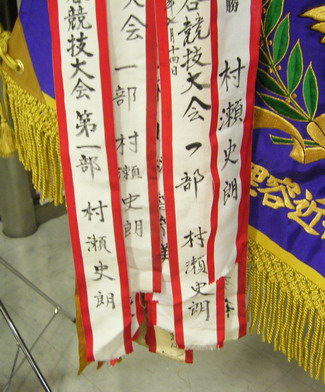 競技大会 第一部 村瀬史朗
大会 一部 村瀬史朗
月十四日
競技大会 一部 村瀬史朗
勝 村瀬史朗
近容理